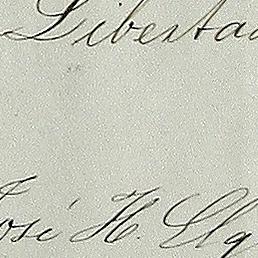 Libertad
José H. Elg